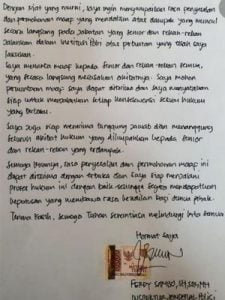 Dengan niat yang murni, saya ingin menyampaikan rasa penyesalan
dan permohonan maaf yang mendalam atas dampak yang muncul
secara langsung pada jabatan yang senior dan rekan-rekan
jalankan dalam institusi Polri atas perbuatan yang telah saya
lakukan.
Saya meminta maaf kepada senior dan rekan-rekan semua
yang secara langsung merasakan akibatnya. Saya mohon
permintaan maaf saya dapat diterima dan saya menyatakan
siap untuk menjalankan setiap konsekuensi sesuai hukum
yang berlaku.
Saya juga siap menerima tanggung jawab dan menanggung
seluruh akibat hukum yang dilimpahkan kepada senior
dan rekan-rekan yang terdampak.
Semoga kiranya, rasa penyesalan dan permohonan maaf ini
dapat diterima dengan terbuka dan saya siap menjalani
proses hukum ini dengan baik sehingga segera mendapatkan
keputusan yang membawa rasa keadilan bagi semua pihak.
Terima kasih, semoga Tuhan senantiasa melindungi kita semua
Hormat saya
FERDY SAMBO, SH, SIK, MH
INSPEKTUR JENDERAL POLISI